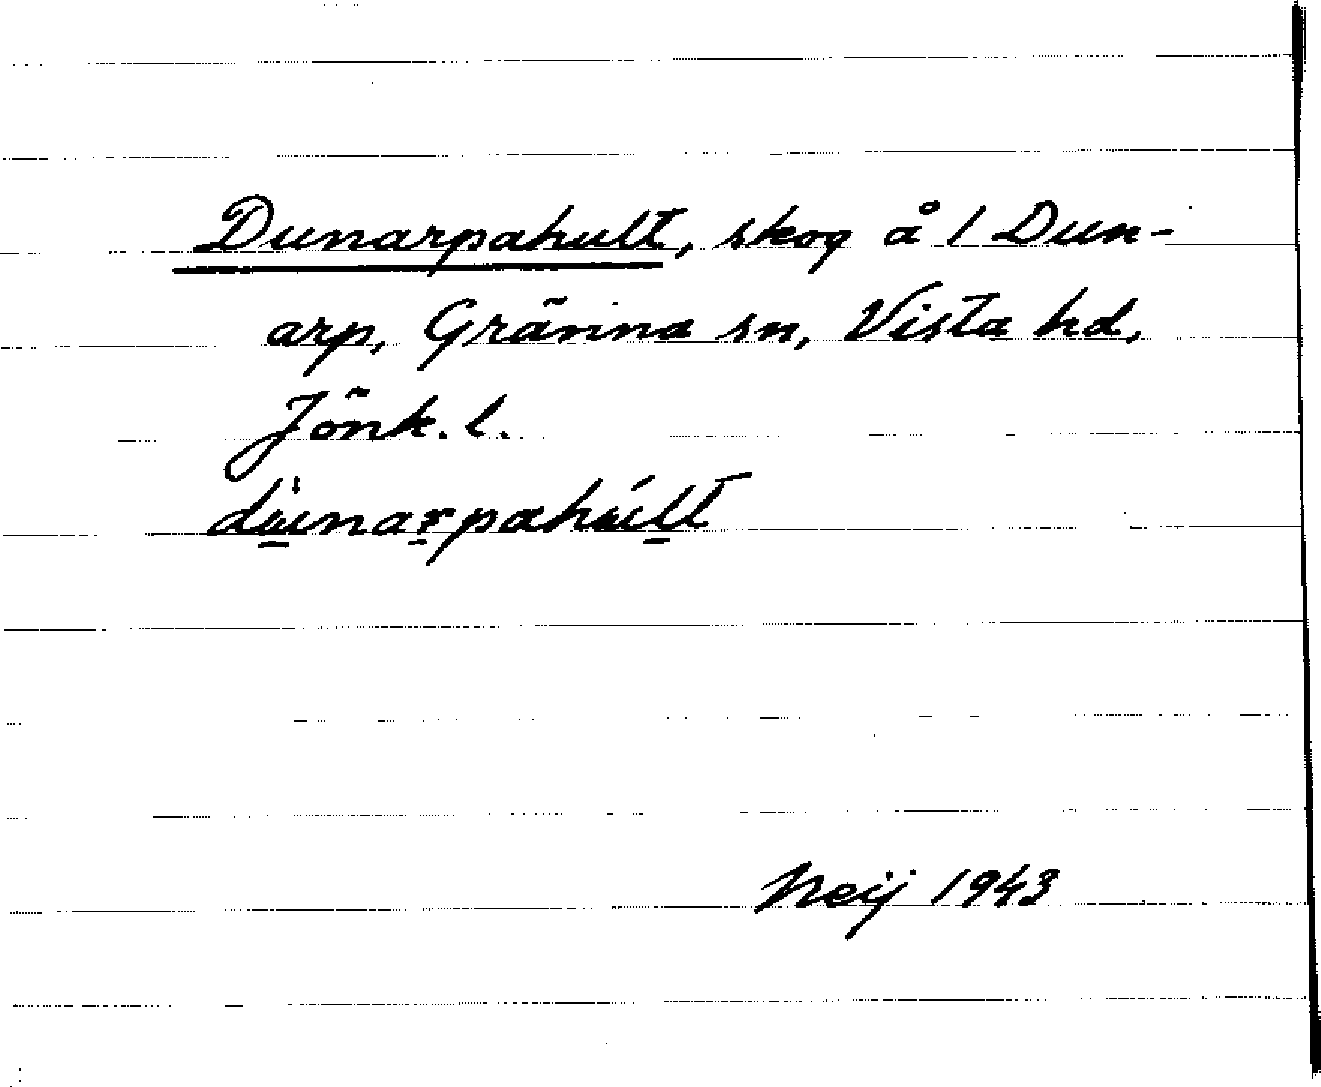 Dunarpahult, skog å 1 Dun-
arp, Gränna sn, Vista hd,
Jönk. l.
dùnarpahúlt
Neij 1943